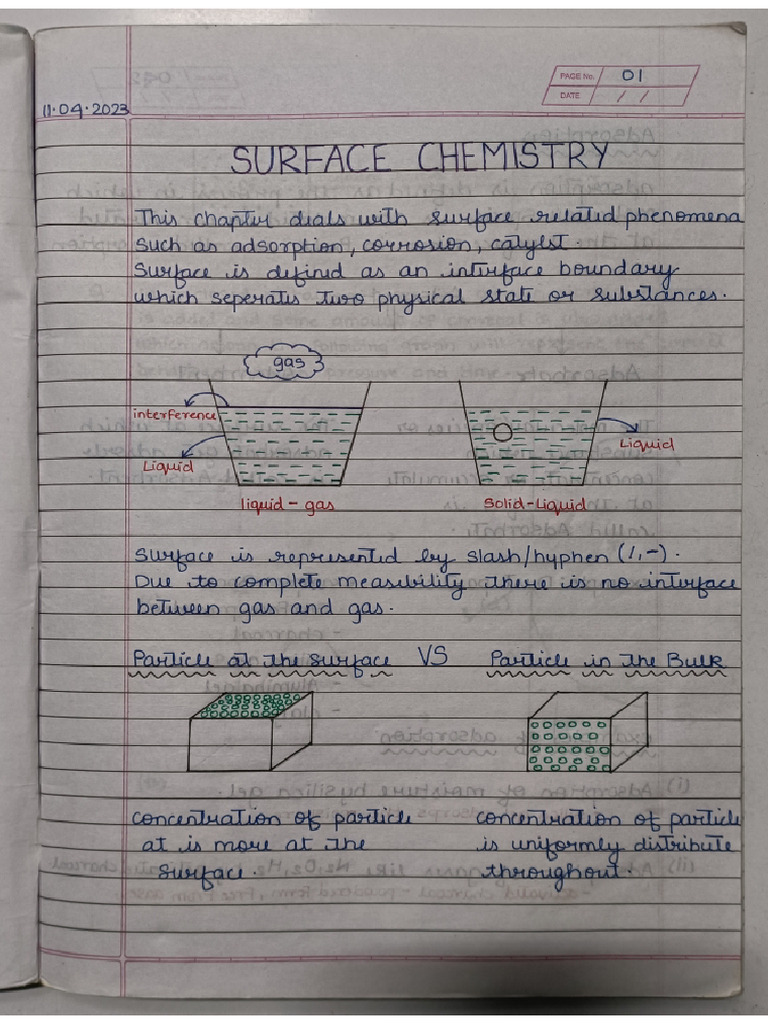 PAGE No. 01
DATE / /
11.04.2023
SURFACE CHEMISTRY
This chapter dials with surface related phenomena
such as adsorption, corrosion, catylst.
Surface is defind as an interface boundary
which seperates two physical state or substances.
gas
interference
Liquid
liquid - gas
Liquid
Solid-Liquid
Surface is represented by slash/hyphen (/,-).
Due to complete measibility there is no interface
between gas and gas.
Particle at the surface VS Particle in the Bulk
concentration of particle
at is more at the
surface.
concentration of particle
is uniformly distribute
throughout.